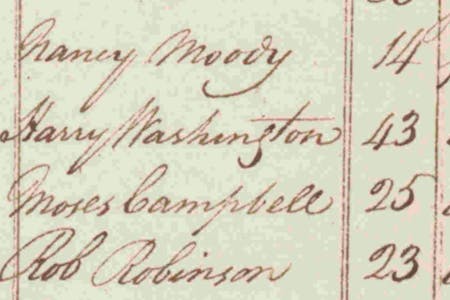 Nancy Moody 14
Harry Washington 43
Moses Campbell 25
Rob Robinson 23